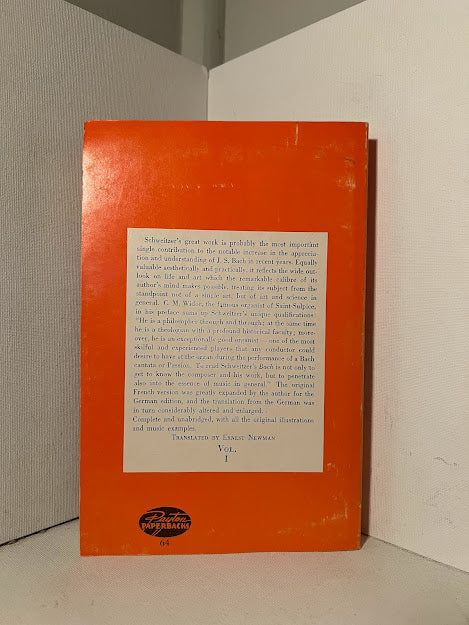 Schweitzer's great work is probably the most important
single contribution to the notable increase in the apprecia-
tion and understanding of J. S. Bach in recent years. Equally
valuable aesthetically and practically, it reflects the wide out-
look on life and art which the remarkable calibre of its
author's mind makes possible, treating its subject from the
standpoint not of a single art, but of art and science in
general. C. M. Widor, the famous organist of Saint-Sulpice,
in his preface sums up Schweitzer's unique qualifications:
"He is a philosopher through and through; at the same time
he is a theologian with a profound historical faculty; more-
over, he is an exceptionally good organist — one of the most
skilful and experienced players that any conductor could
desire to have at the organ during the performance of a Bach
cantata or Passion. To read Schweitzer's Bach is not only to
get to know the composer and his work, but to penetrate
also into the essence of music in general." The original
French version was greatly expanded by the author for the
German edition, and the translation from the German was
in turn considerably altered and enlarged.
Complete and unabridged, with all the original illustrations
and music examples.
TRANSLATED BY ERNEST NEWMAN
VOL.
I
PAPERBACKS
64